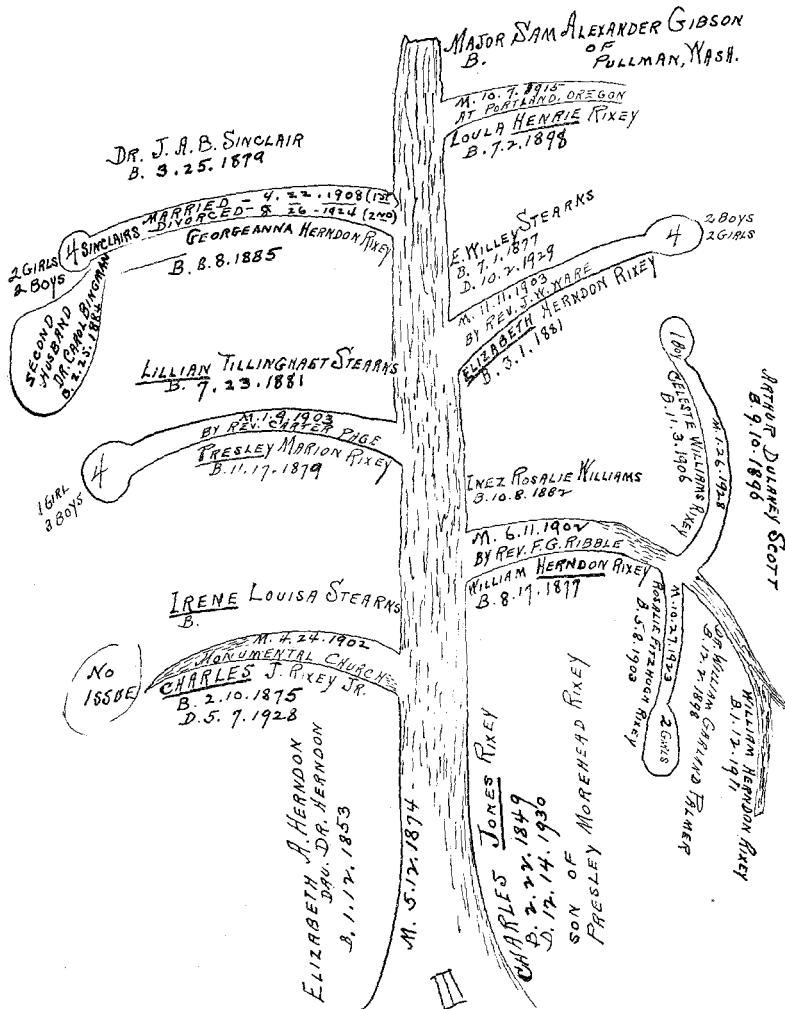 MAJOR SAM ALEXANDER GIBSON
B.
OF
PULLMAN, WASH.
M. 10.7.1915
AT PORTLAND, OREGON
LOULA HENRIE RIXEY
B. 7.2.1898
DR. J. A. B. SINCLAIR
B. 3.25.1879
MARRIED - 4.22.1908 (1ST)
DIVORCED - 8 26 - 1924 (2ND)
GEORGEANNA HERNDON RIXEY
B. 8.8.1885
4 SINCLAIRS
2 GIRLS
2 BOYS
SECOND
HUSBAND
DR. CAROL BINGMAN
B. 2.25.
E. WILLEY STEARNS
B. 7.1.1877
D. 10.2.1929
M. 11.11.1903
BY REV. J. W. WARE
ELIZABETH HERNDON RIXEY
B. 3.1.1881
4
2 BOYS
2 GIRLS
LILLIAN TILLINGHAST STEARNS
B. 7.23.1881
M. 1.9.1903
BY REV. CARTER PAGE
PRESLEY MARION RIXEY
B. 11.17.1879
4
1 GIRL
3 BOYS
INEZ ROSALIE WILLIAMS
B. 10.8.1882
M. 6.11.1902
BY REV. F. G. RIBBLE
WILLIAM HERNDON RIXEY
B. 8.17.1877
1 BOY
CELESTE WILLIAMS RIXEY
B. 11.3.1906
M. 1.26.1928
ARTHUR DULANEY SCOTT
B. 9.10.1896
M. 10.27.1923
ROSALIE FITZHUGH RIXEY
B. 5.8.1903
2 GIRLS
DR. WILLIAM GARLAND PALMER
B. 12.2.1898
WILLIAM HERNDON RIXEY
B. 1.12.1911
IRENE LOUISA STEARNS
B.
M. 4.24.1902
MONUMENTAL CHURCH
CHARLES J. RIXEY JR.
B. 2.10.1875
D. 5.7.1928
NO
ISSUE
ELIZABETH A. HERNDON
DAU. DR. HERNDON
B. 1.12.1853
M. 5.12.1874
CHARLES JONES RIXEY
B. 2.22.1849
D. 12.14.1930
SON OF
PRESLEY MOREHEAD RIXEY